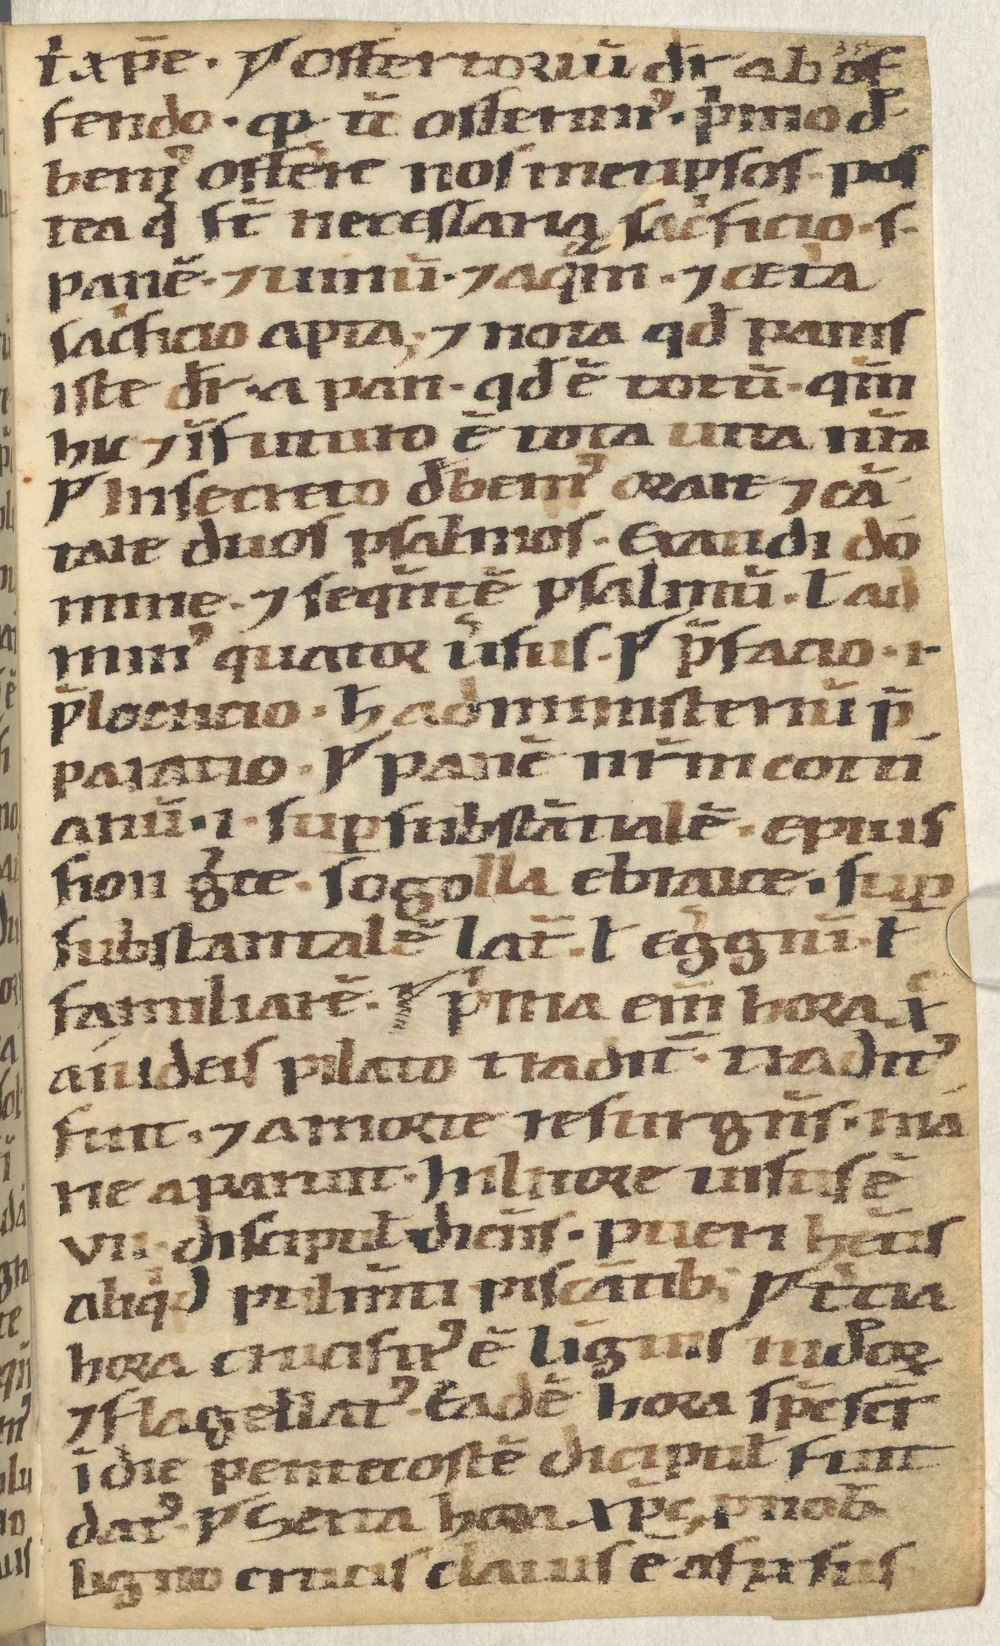 ł xp̄e. ℣ Offertoriū dr̄ ab of
ferendo. qꝑ tc̄ offerimꝰ. p̍mo de
bemꝰ offere nos metipsos. pos
tea q̄ st̄ necessaria sac̍ficio. s.
panē. ⁊ uinū. ⁊ aq̄m. ⁊ cet̍a
sac̍ficio apta. ⁊ nota qd̄ panis
iste dr̄. a pan. qd̄ ē totū. qm̄
hic ⁊ ī futuro ē tota uita nr̄a
℣ In secreto debemꝰ orare ⁊ cā
tare duos psalmos. Exaudi do
mine. ⁊ seqn̄tē psalmū. ł ad
minꝰ quatuor ūsus. ℣ p̄facio. i.
p̄locucio. ł administeriū p̄
paratio. ℣ panē nr̄m cotti
anū. i. sup̱substātialē. epius
sion g̍ce. sogolla ebraice. sup̱
substantialē lat̄. ł eg̍giū. ł
familiarē. ℣ p̍ma em̄ hora x̄c
a iudeis pilato tradit̄. traditꝰ
fuit. ⁊ a morte resurgēs. ma
ne aparuit. In litore uisus ē
VII. discipul̄ dicēs. pueri hētis
aliq̍d pulmn̄ti piscātib; ℣ t̍cia
hora crucifixꝰ ē liguis iudeoꝝ
⁊ flagellatꝰ. Eadē hora sp̄c sc̄s
ī die pentecostē dicipul̄ fuit
datꝰ. ℣ Sexta hora xp̄c, p nob̄
ligno crucis clauis ē affixus